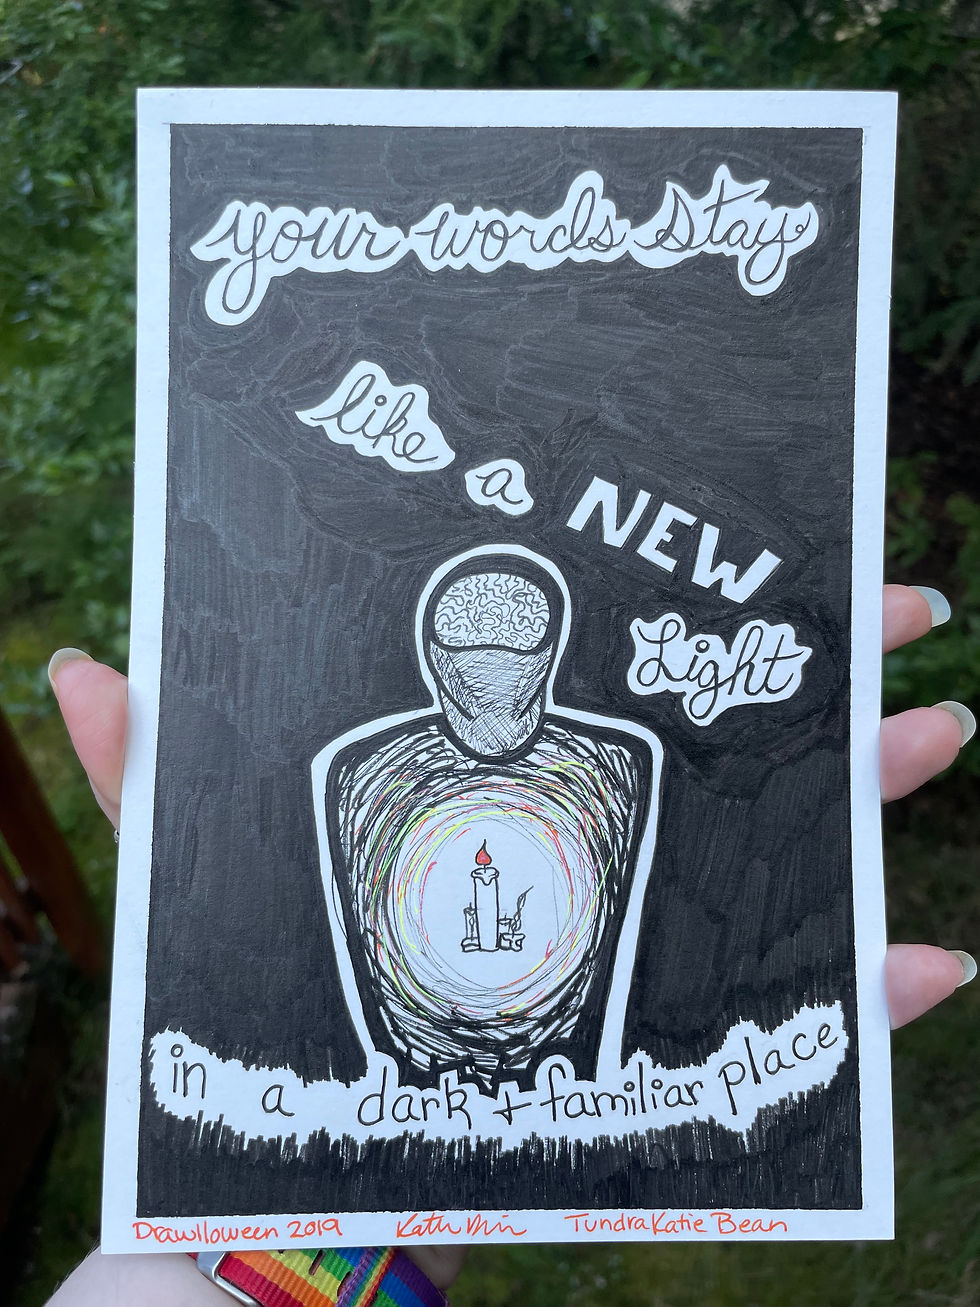 your words stay
like a NEW
Light
in a dark + familiar place
Drawlloween 2019 TundraKatie Bean